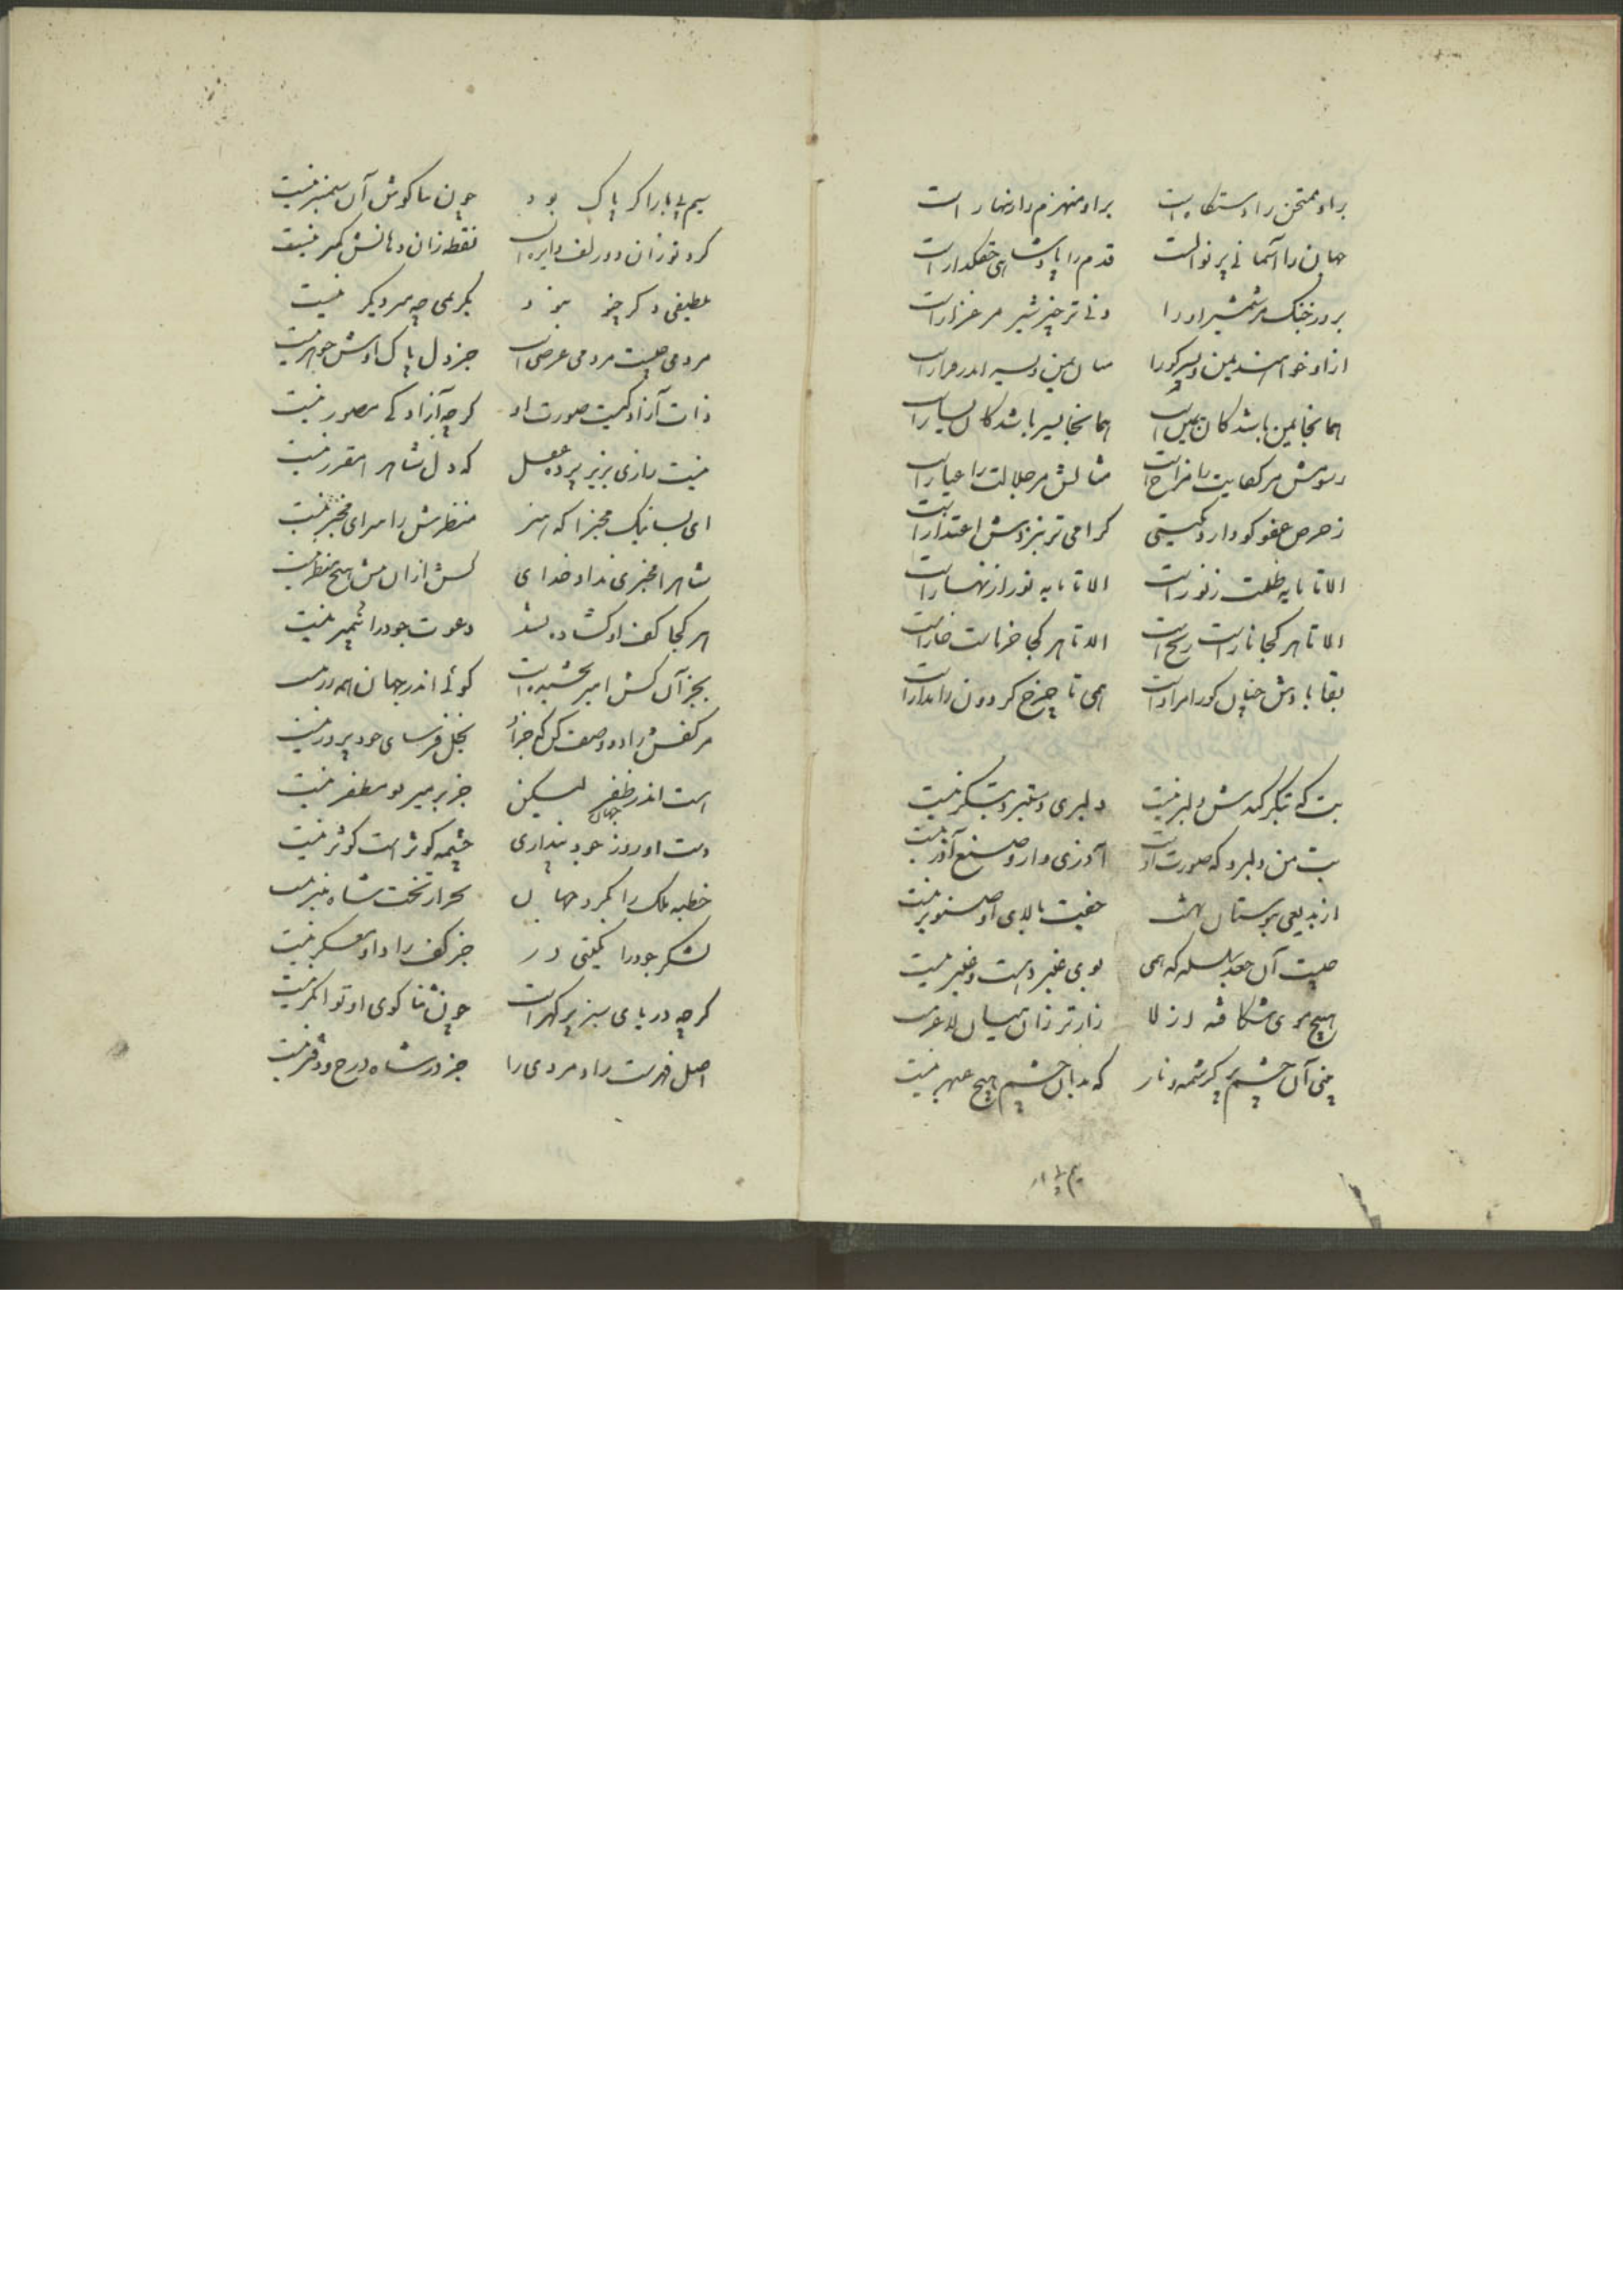 براو ممتحن را دستگاه است براو منهزم را زنهار است
جهان را آسمانی پر نوالست قدم را پادشاهی حقگذارست
بروز جنگ مر شمشیر او را دنی تر چیز شیر مرغزارست
ازو خواهند یمن و یسر کو را یمین و
همانجا یمن باشد کان یمین است همانجا یسر باشد کان یسارست
رسومش مر کفایت را مزاج است مثالش مر جلالت را عیارست
ز حرص عفو کو دارد کیتی کرامی تر بنزدش اعتذارست
الا تا مایه ظلمت ز نورست الا تا مایه نور از نهارست
الا تا هر کجا نارست ریح است الا تا هر کجا خرماست خارست
بقا بادش چنان کو را مرادست همی تا چرخ کردون را مدارست
بت که بتکر کندش دلبر نیست دلبری دستبرد بتکر نیست
بت من دل برد که صورت اوست آزری وار و صنع آزر نیست
از بدیعی ببوستان بهشت جفت بالای او صنوبر نیست
چیست آن جعد سلسله که همی بوی عنبر دهست و عنبر نیست
هیچ موی شکافته از لا زارتر زان میان لاغر نیست
بینی آن چشم پر کرشمه و ناز که بدان چشم هیچ عبهر نیست
سیم بی بار اکر پاک بود چون بناکوش آن سیمنبر نیست
کرد نور زان دو زلف دایره است نقطه زان دهانش کمتر نیست
بلطیفی دکر چنو نبود بکریمی چو میر دیکر نیست
مردمی چیست مردمی عرض است جز دل پاک اوش جوهر نیست
ذات آزادکیست صورت او کرچه آزادکی مصور نیست
نیست رازی بزیر پرده عقل که دل شاه را مقرر نیست
ای بسا نیک مخبرا که هنر منظرش را سزای مخبر نیست
شاه را مخبری نداد خدای کش ازان بیش هیچ منظر نیست
هر کجا کف او کشاده بشد دعوت جود را پیمبر نیست
بجز آن کش امیر بخشیده است کوئی اندر جهان همه زر نیست
مر کفش را دو وصف کن که جز او بخل فرسای جود پرور نیست
هست اندر جهان ظفر لیکن جز بر میر بو مظفر نیست
دست او روز جود پنداری چشمه کوثر است کوثر نیست
خطبه ملک را بکرد جهان بجز از تخت شاه منبر نیست
لشکر جود را بکیتی در جز کف راد او معسکر نیست
کرچه دریای سبز پر کهرست چون ثنا کوی او توانکر نیست
اصل فهرست راد مردی را جز در شاه درج و دفتر نیست